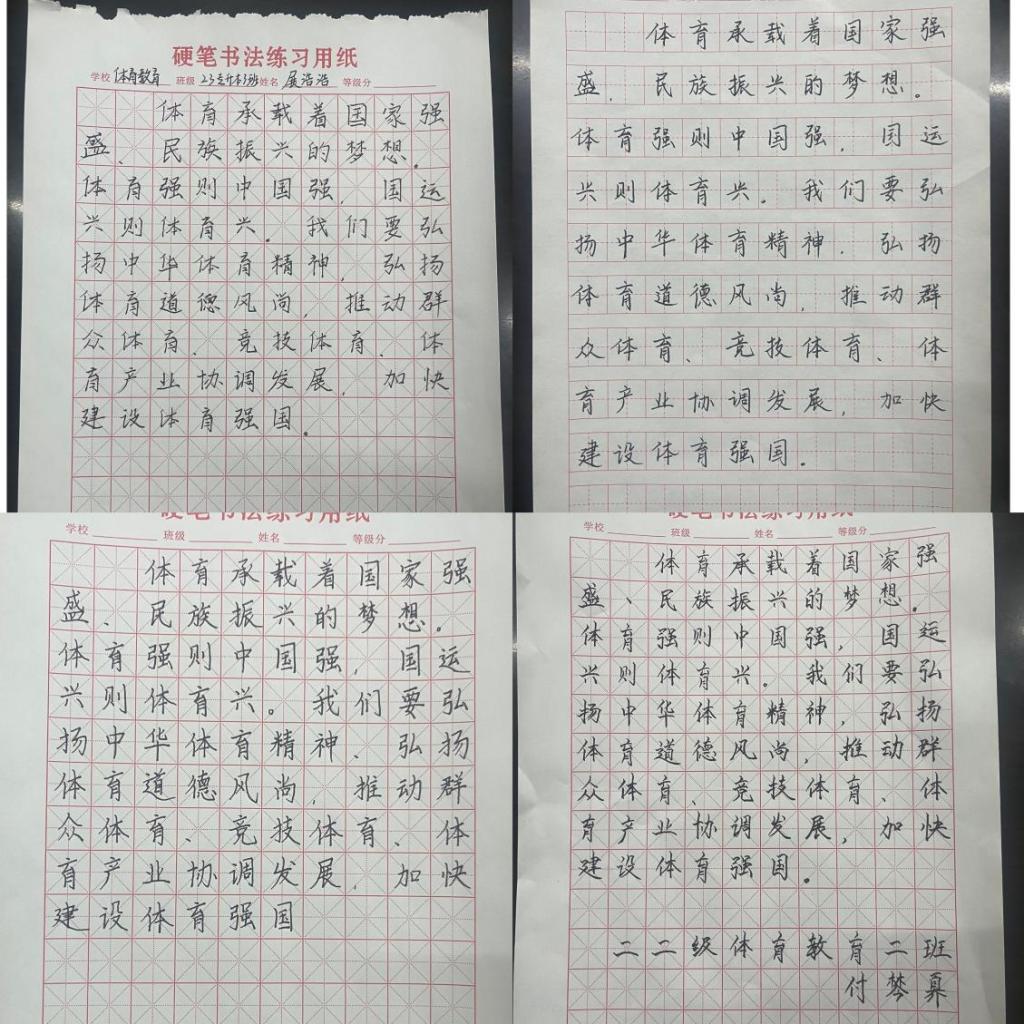 硬笔书法练习用纸
学校 体育教育 班级 23专升本1班 姓名 展浩浩 等级分
体育承载着国家强
盛、民族振兴的梦想。
体育强则中国强，国运
兴则体育兴。我们要弘
扬中华体育精神，弘扬
体育道德风尚，推动群
众体育、竞技体育、体
育产业协调发展，加快
建设体育强国。
体育承载着国家强
盛、民族振兴的梦想。
体育强则中国强，国运
兴则体育兴。我们要弘
扬中华体育精神．弘扬
体育道德风尚，推动群
众体育、竞技体育、体
育产业协调发展，加快
建设体育强国。
硬笔书法练习用纸
学校 班级 姓名 等级分
体育承载着国家强
盛、民族振兴的梦想。
体育强则中国强，国运
兴则体育兴。我们要弘
扬中华体育精神、弘扬
体育道德风尚，推动群
众体育、竞技体育、体
育产业协调发展，加快
建设体育强国
硬笔书法练习用纸
学校 班级 姓名 等级分
体育承载着国家强
盛、民族振兴的梦想。
体育强则中国强，国运
兴则体育兴。我们要弘
扬中华体育精神，弘扬
体育道德风尚，推动群
众体育、竞技体育、体
育产业协调发展，加快
建设体育强国。
二二级体育教育二班
付梦